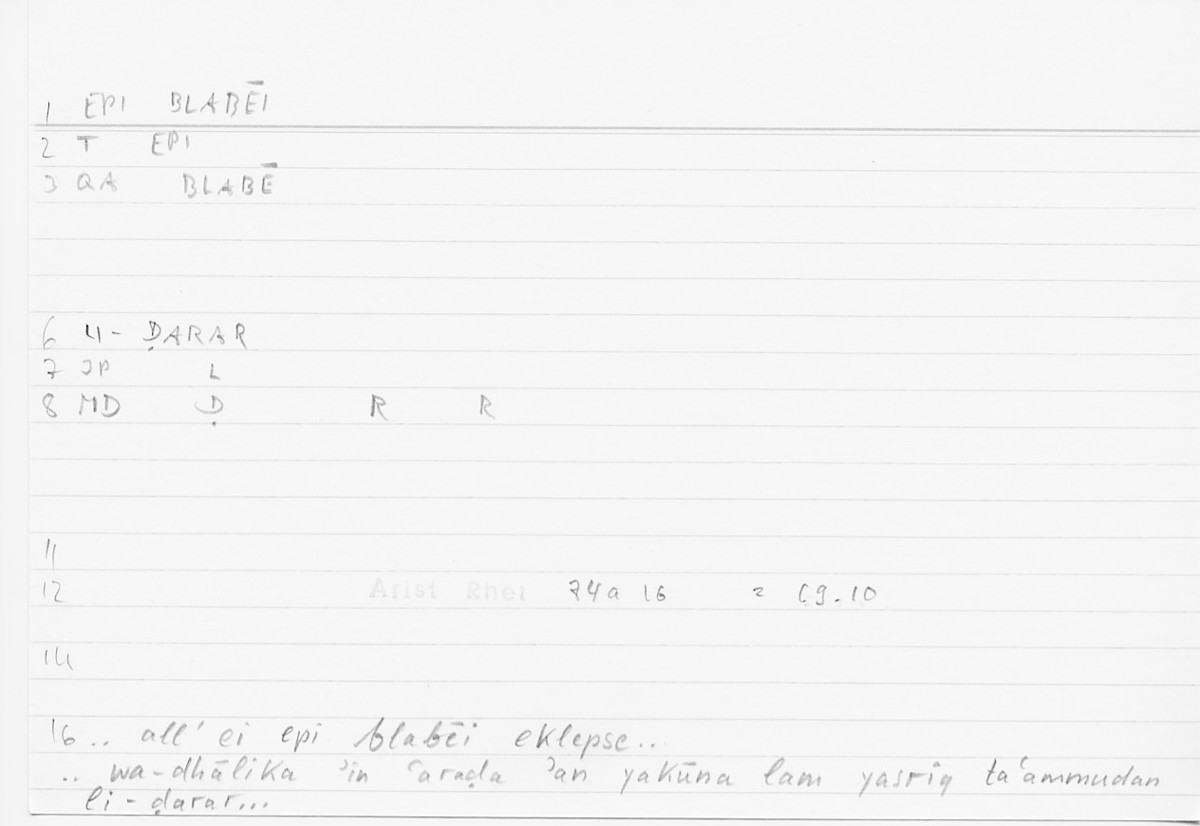 1 EPI BLABĒI
2 T EPI
3 QA BLABĒ
6 LI- ḌARAR
7 JP L
8 MD Ḍ R R
11
12 Arist Rhet 74a 16 = 69.10
14
16 .. all' ei epi blabēi eklepse..
.. wa-dhālika ʾin ʿaraḍa ʾan yakūna lam yasriq taʿammudan
li-ḍarar...